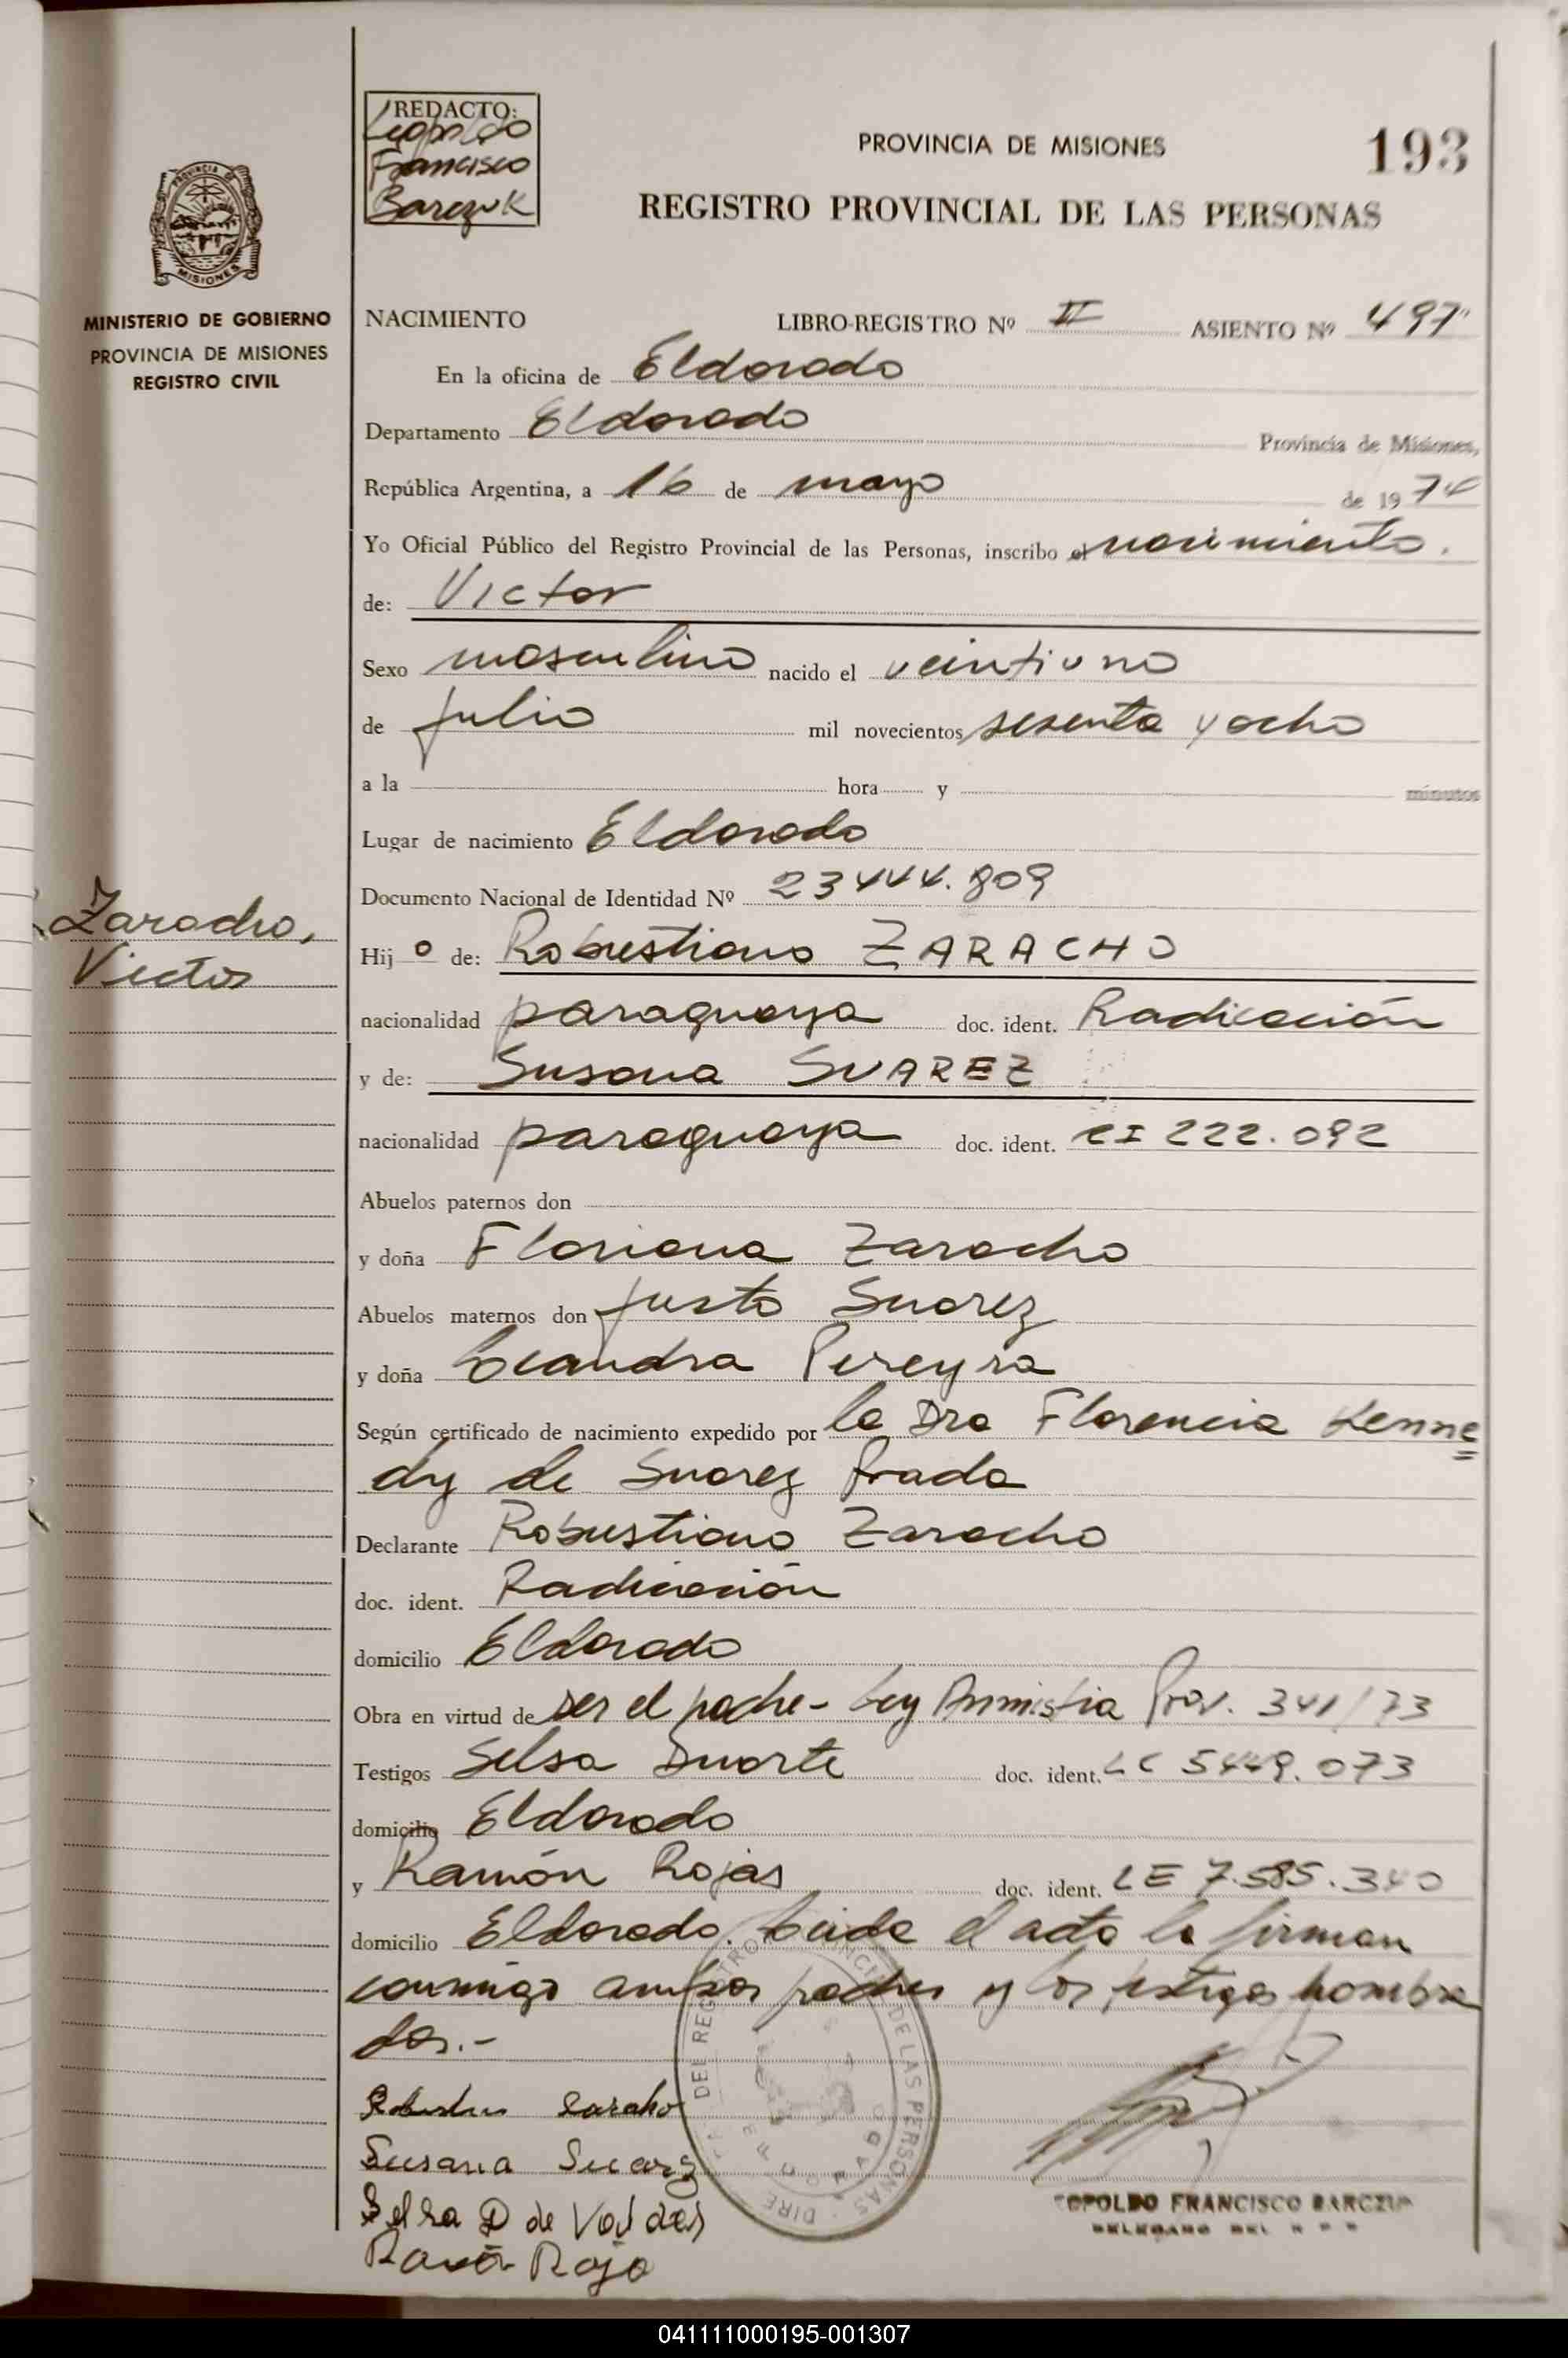 REDACTO:
Leopoldo
Francisco
Barczuk
PROVINCIA DE MISIONES
193
REGISTRO PROVINCIAL DE LAS PERSONAS
PROVINCIA DE
MISIONES
MINISTERIO DE GOBIERNO
PROVINCIA DE MISIONES
REGISTRO CIVIL
NACIMIENTO LIBRO-REGISTRO Nº II ASIENTO Nº 497
En la oficina de Eldorado
Departamento Eldorado Provincia de Misiones,
República Argentina, a 16 de mayo de 1974
Yo Oficial Público del Registro Provincial de las Personas, inscribo el nacimiento.
de: Victor
Sexo masculino nacido el veintiuno
de julio mil novecientos sesenta y ocho
a la hora y minutos
Lugar de nacimiento Eldorado
Documento Nacional de Identidad Nº 23444.809
Zaracho,
Victor
Hij o de: Robustiano ZARACHO
nacionalidad paraguaya doc. ident. Radicación
y de: Susana SUAREZ
nacionalidad paraguaya doc. ident. CI 222.092
Abuelos paternos don
y doña Floriana Zaracho
Abuelos maternos don Justo Suarez
y doña Leandra Pereyra
Según certificado de nacimiento expedido por la Dra Florencia Kenne
dy de Suarez Prada
Declarante Robustiano Zaracho
doc. ident. Radicación
domicilio Eldorado
Obra en virtud de ser el padre - Ley Amnistia Prov. 341/73
Testigos Selsa Duarte doc. ident. LC 5449.073
domicilio Eldorado
y Ramón Rojas doc. ident. LE 7.585.340
domicilio Eldorado. Leida el acta la firman
conmigo ambos padres y los testigos nombra
dos.-
Zaracho
Susana Suarez
Selsa D de Valdez
Ramón Roja
DEL REGISTRO PROVINCIAL DE LAS PERSONAS
ELDORADO
LEOPOLDO FRANCISCO BARCZUK
DELEGADO DEL R P P
041111000195-001307